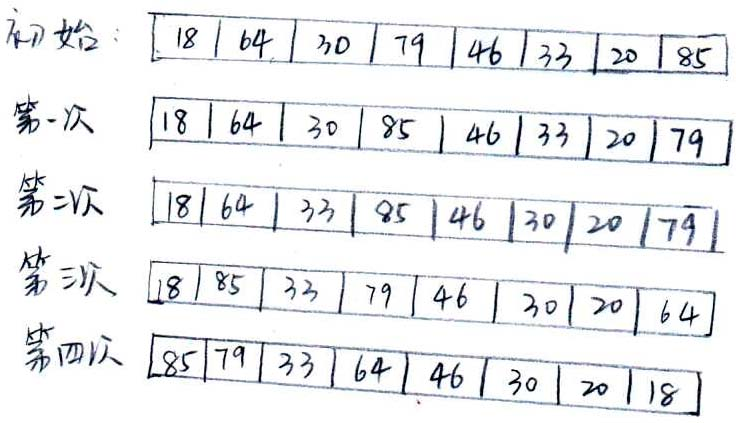 初始: 18 64 30 79 46 33 20 85
第一次 18 64 30 85 46 33 20 79
第二次 18 64 33 85 46 30 20 79
第三次 18 85 33 79 46 30 20 64
第四次 85 79 33 64 46 30 20 18